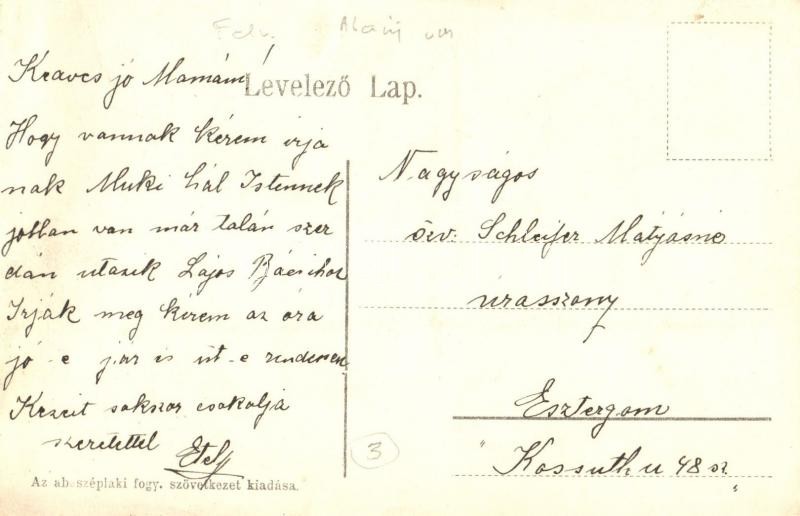 Felv.
Levelező Lap.
Kedves jó Mamám!
Hogy vannak kérem irja
nak Muki hál Istennek
jobban van már talán szer
dán utazik Lajos Bácsihoz
Irják meg kérem az óra
jó-e jár és üt-e rendesen
Kezeit sokszor csokolja
szeretettel Etel
Az abaszéplaki fogy. szövetkezet kiadása.
Nagyságos
özv. Schleifer Mátyásné
úrasszony
Esztergom
Kossuth u 48 sz
3